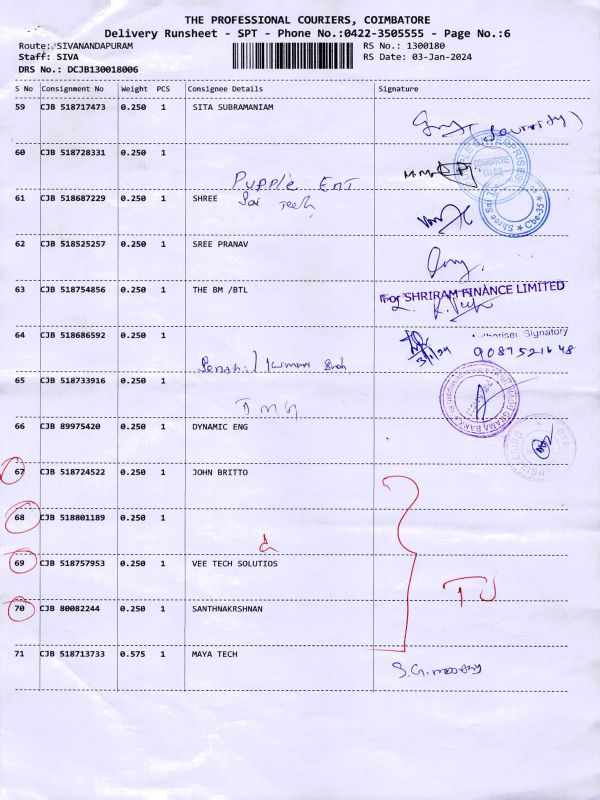 THE PROFESSIONAL COURIERS, COIMBATORE
Delivery Runsheet - SPT - Phone No.:0422-3505555 - Page No.:6
Route: SIVANANDAPURAM RS No.: 1300180
Staff: SIVA RS Date: 03-Jan-2024
DRS No.: DCJB130018006
S No Consignment No Weight PCS Consignee Details Signature
59 CJB 518717473 0.250 1 SITA SUBRAMANIAM
60 CJB 518728331 0.250 1
Pupple Ent
61 CJB 518687229 0.250 1 SHREE Sai Tech
62 CJB 518525257 0.250 1 SREE PRANAV
63 CJB 518754856 0.250 1 THE BM /BTL
For SHRIRAM FINANCE LIMITED
64 CJB 518686592 0.250 1
Authorised Signatory
3/1/24 9087521648
65 CJB 518733916 0.250 1
TMG
66 CJB 89975420 0.250 1 DYNAMIC ENG
67 CJB 518724522 0.250 1 JOHN BRITTO
68 CJB 518801189 0.250 1
69 CJB 518757953 0.250 1 VEE TECH SOLUTIOS
70 CJB 80082244 0.250 1 SANTHNAKRSHNAN
71 CJB 518713733 0.575 1 MAYA TECH